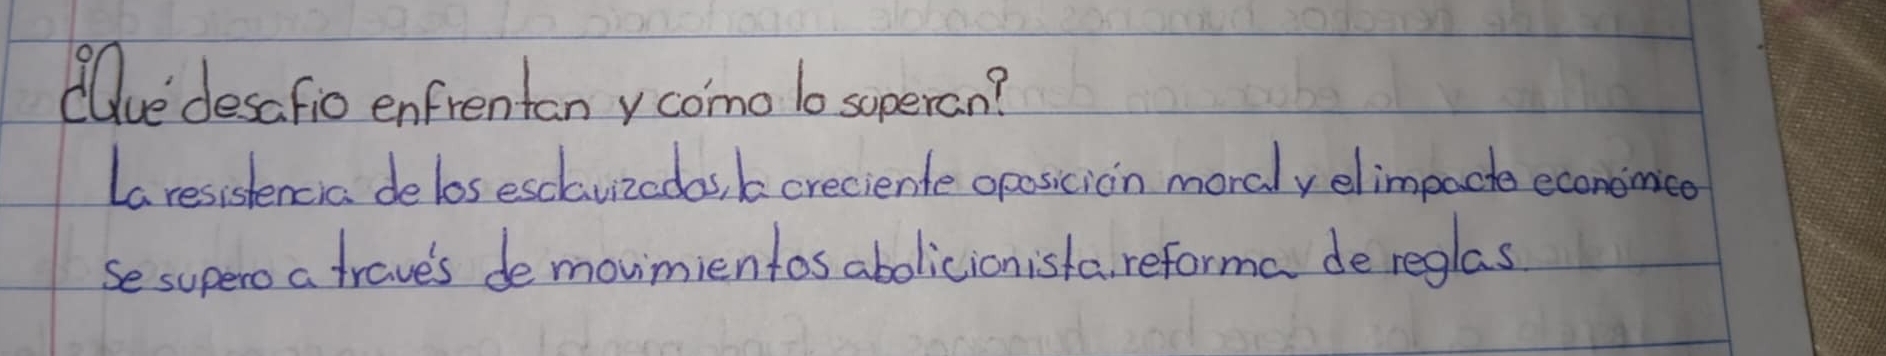 ¿Qué desafio enfrentan y cómo lo superan?
La resistencia de los esclavizados, la creciente oposición moral y el impacto económico
se supero a través de movimientos abolicionista, reforma de reglas.